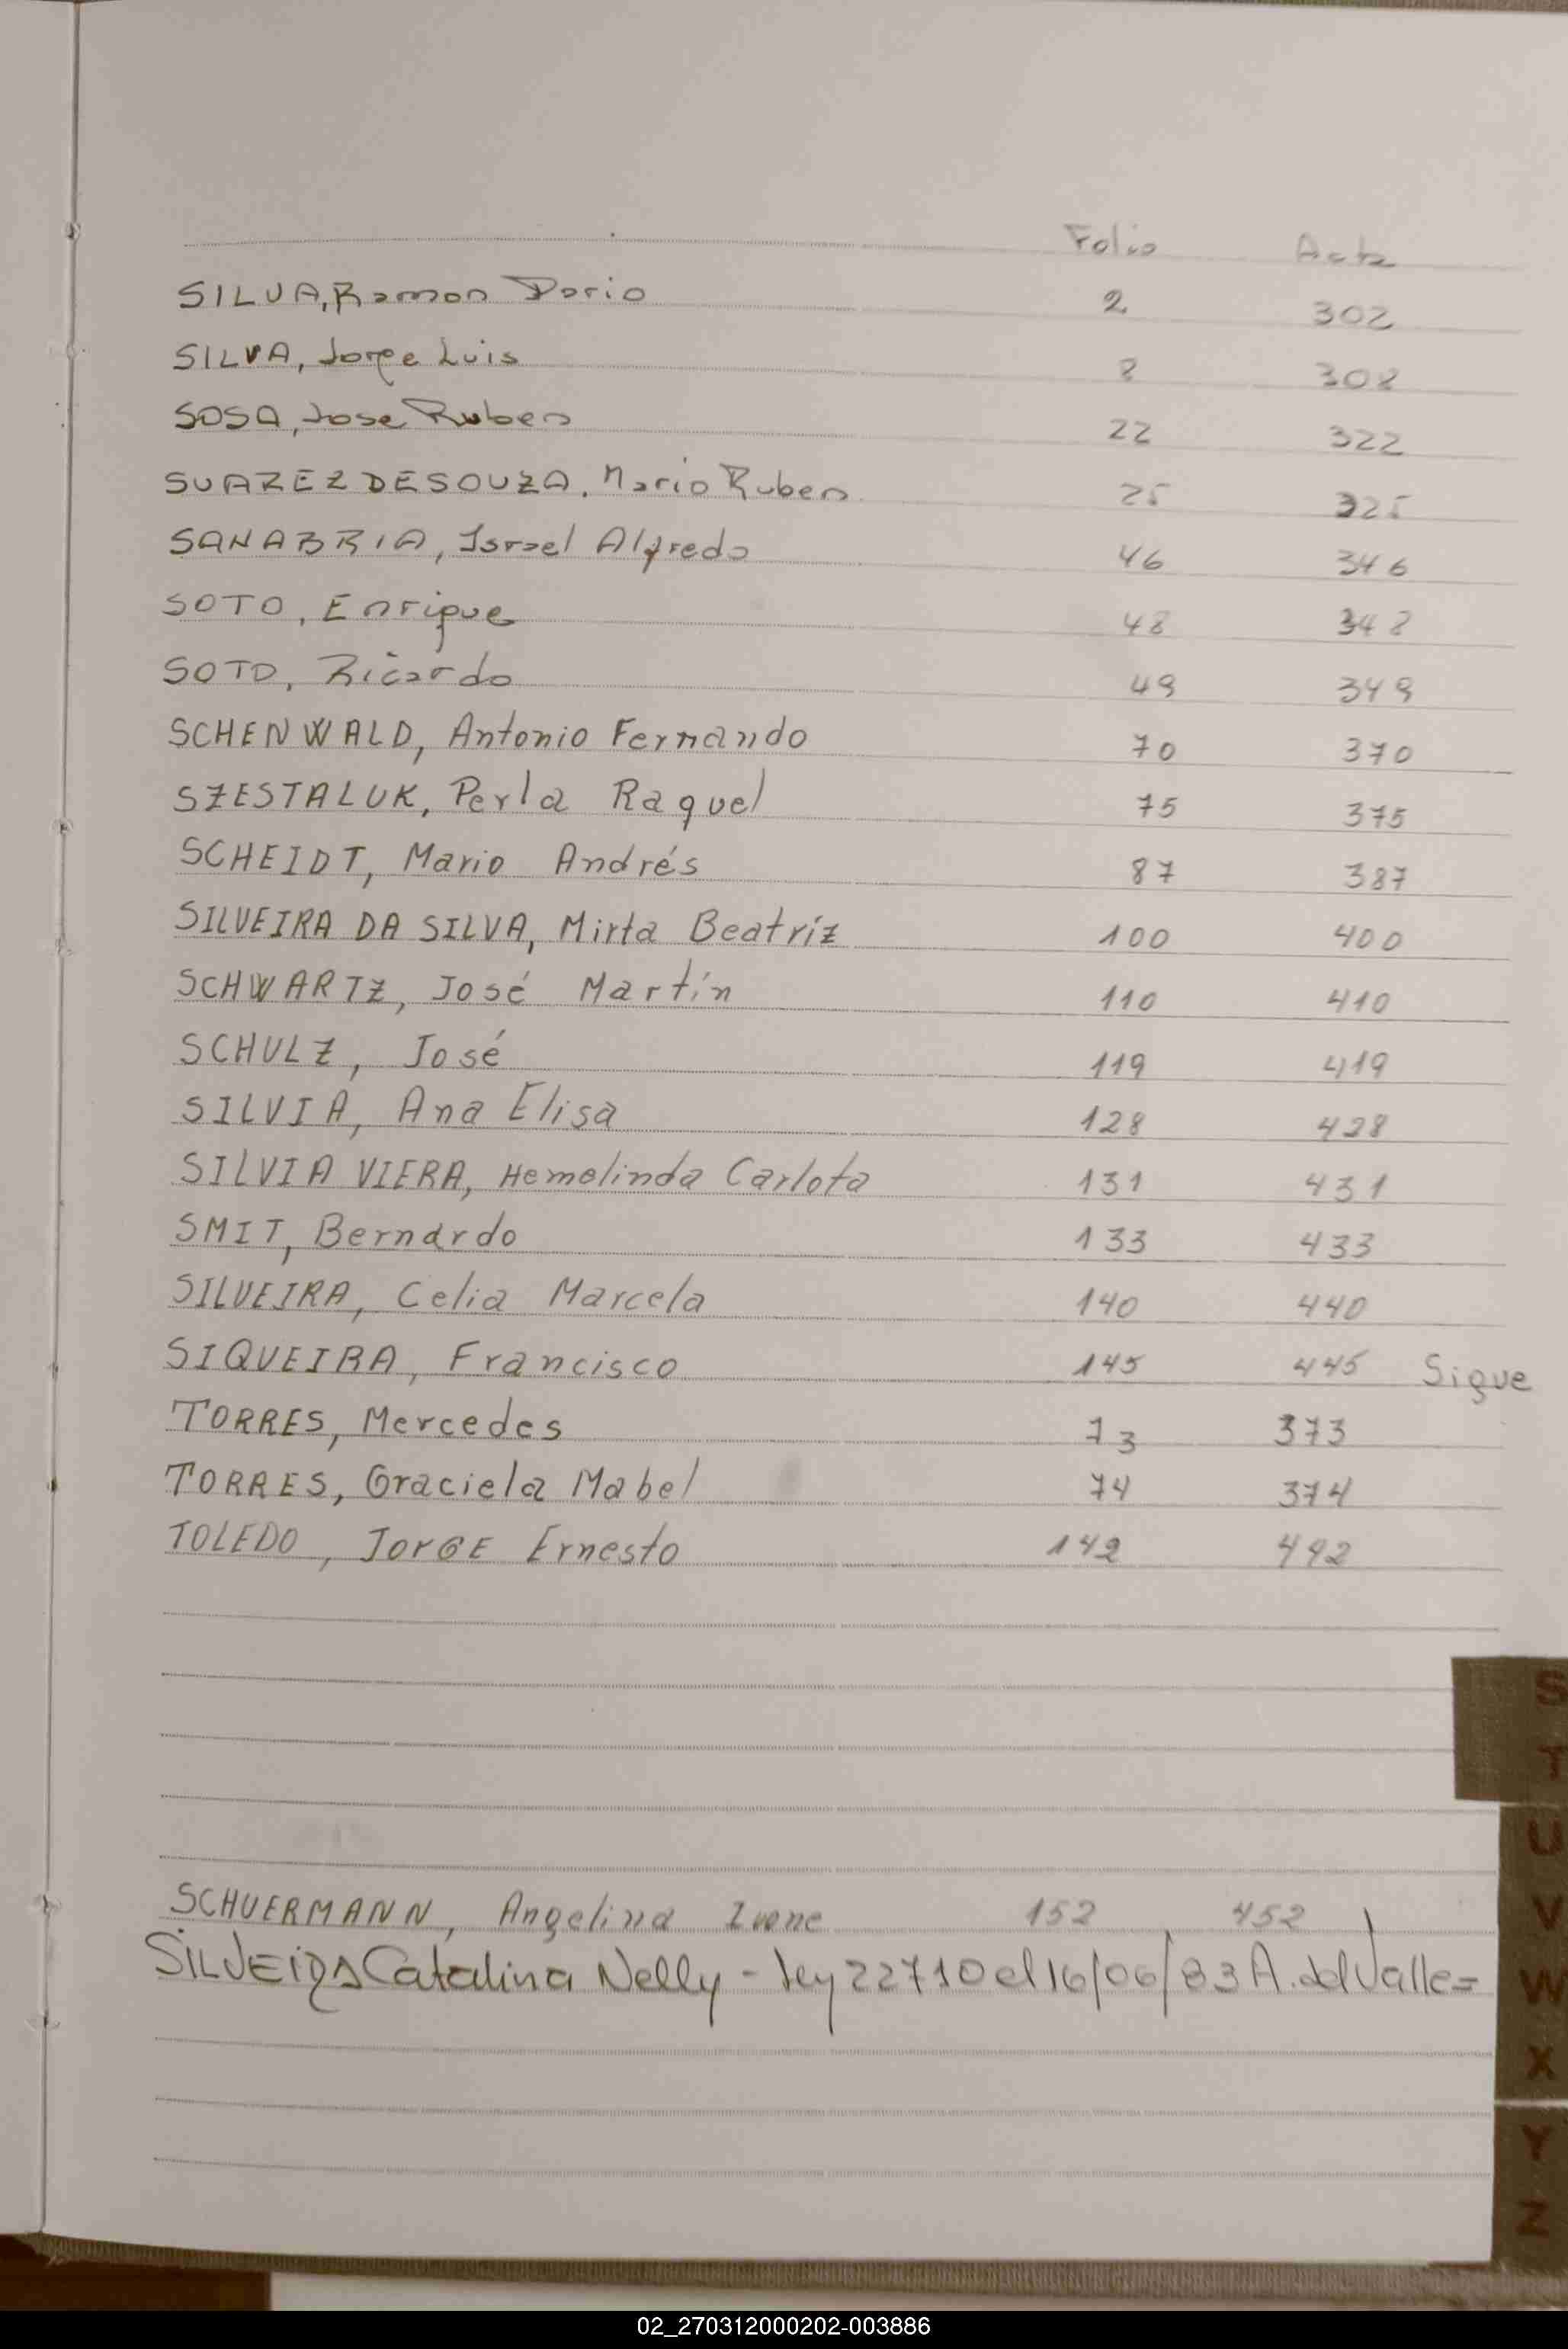 Folio Acta
SILVA, Ramon Dario 2 302
SILVA, Jorge Luis 8 308
SOSA, Jose Ruben 22 322
SUAREZ DE SOUZA, Mario Ruben 25 325
SANABRIA, Israel Alfredo 46 346
SOTO, Enrique 48 348
SOTO, Ricardo 49 349
SCHENWALD, Antonio Fernando 70 370
SZESTALUK, Perla Raquel 75 375
SCHEIDT, Mario Andrés 87 387
SILVEIRA DA SILVA, Mirta Beatríz 100 400
SCHWARTZ, José Martín 110 410
SCHULZ, José 119 419
SILVIA, Ana Elisa 128 428
SILVIA VIERA, Hemelinda Carlota 131 431
SMIT, Bernardo 133 433
SILVEIRA, Celia Marcela 140 440
SIQVEIRA, Francisco 145 445 Sigue
TORRES, Mercedes 73 373
TORRES, Graciela Mabel 74 374
TOLEDO, JorGE Ernesto 142 442
SCHUERMANN, Angelina Ivone 152 452
SILVEIRA Catalina Nelly - Ley 22710 el 16/06/83 A. del Valle =
S
T
U
V
W
X
Y
Z
02_270312000202-003886